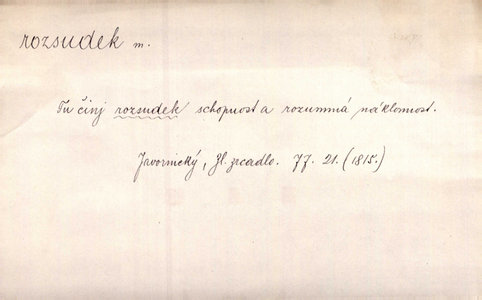 rozsudek m.
Tu činj rozsudek schopnost a rozumná náklonnost.
Javornický, Zl. zrcadlo. 77. 21. (1815.)